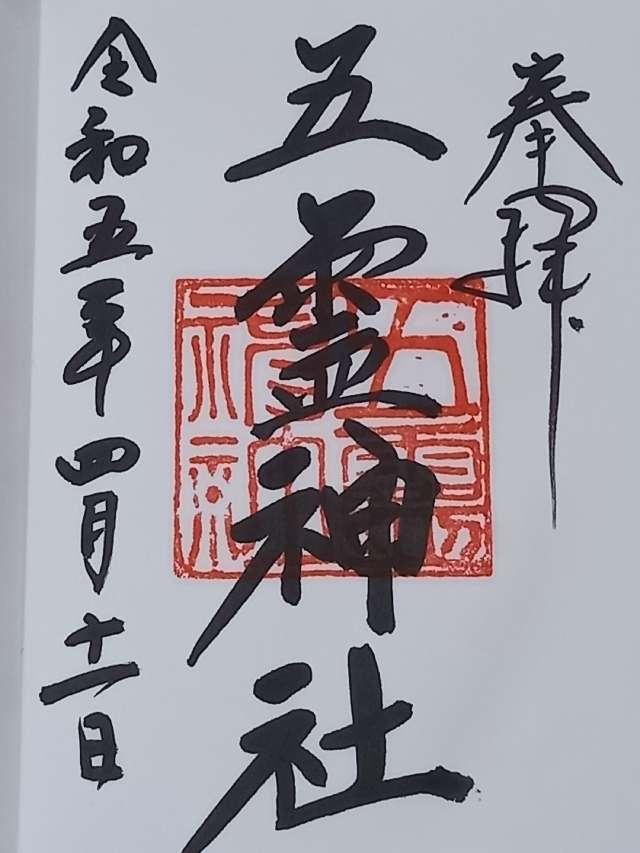 奉拝
五霊神社
令和五年四月十一日